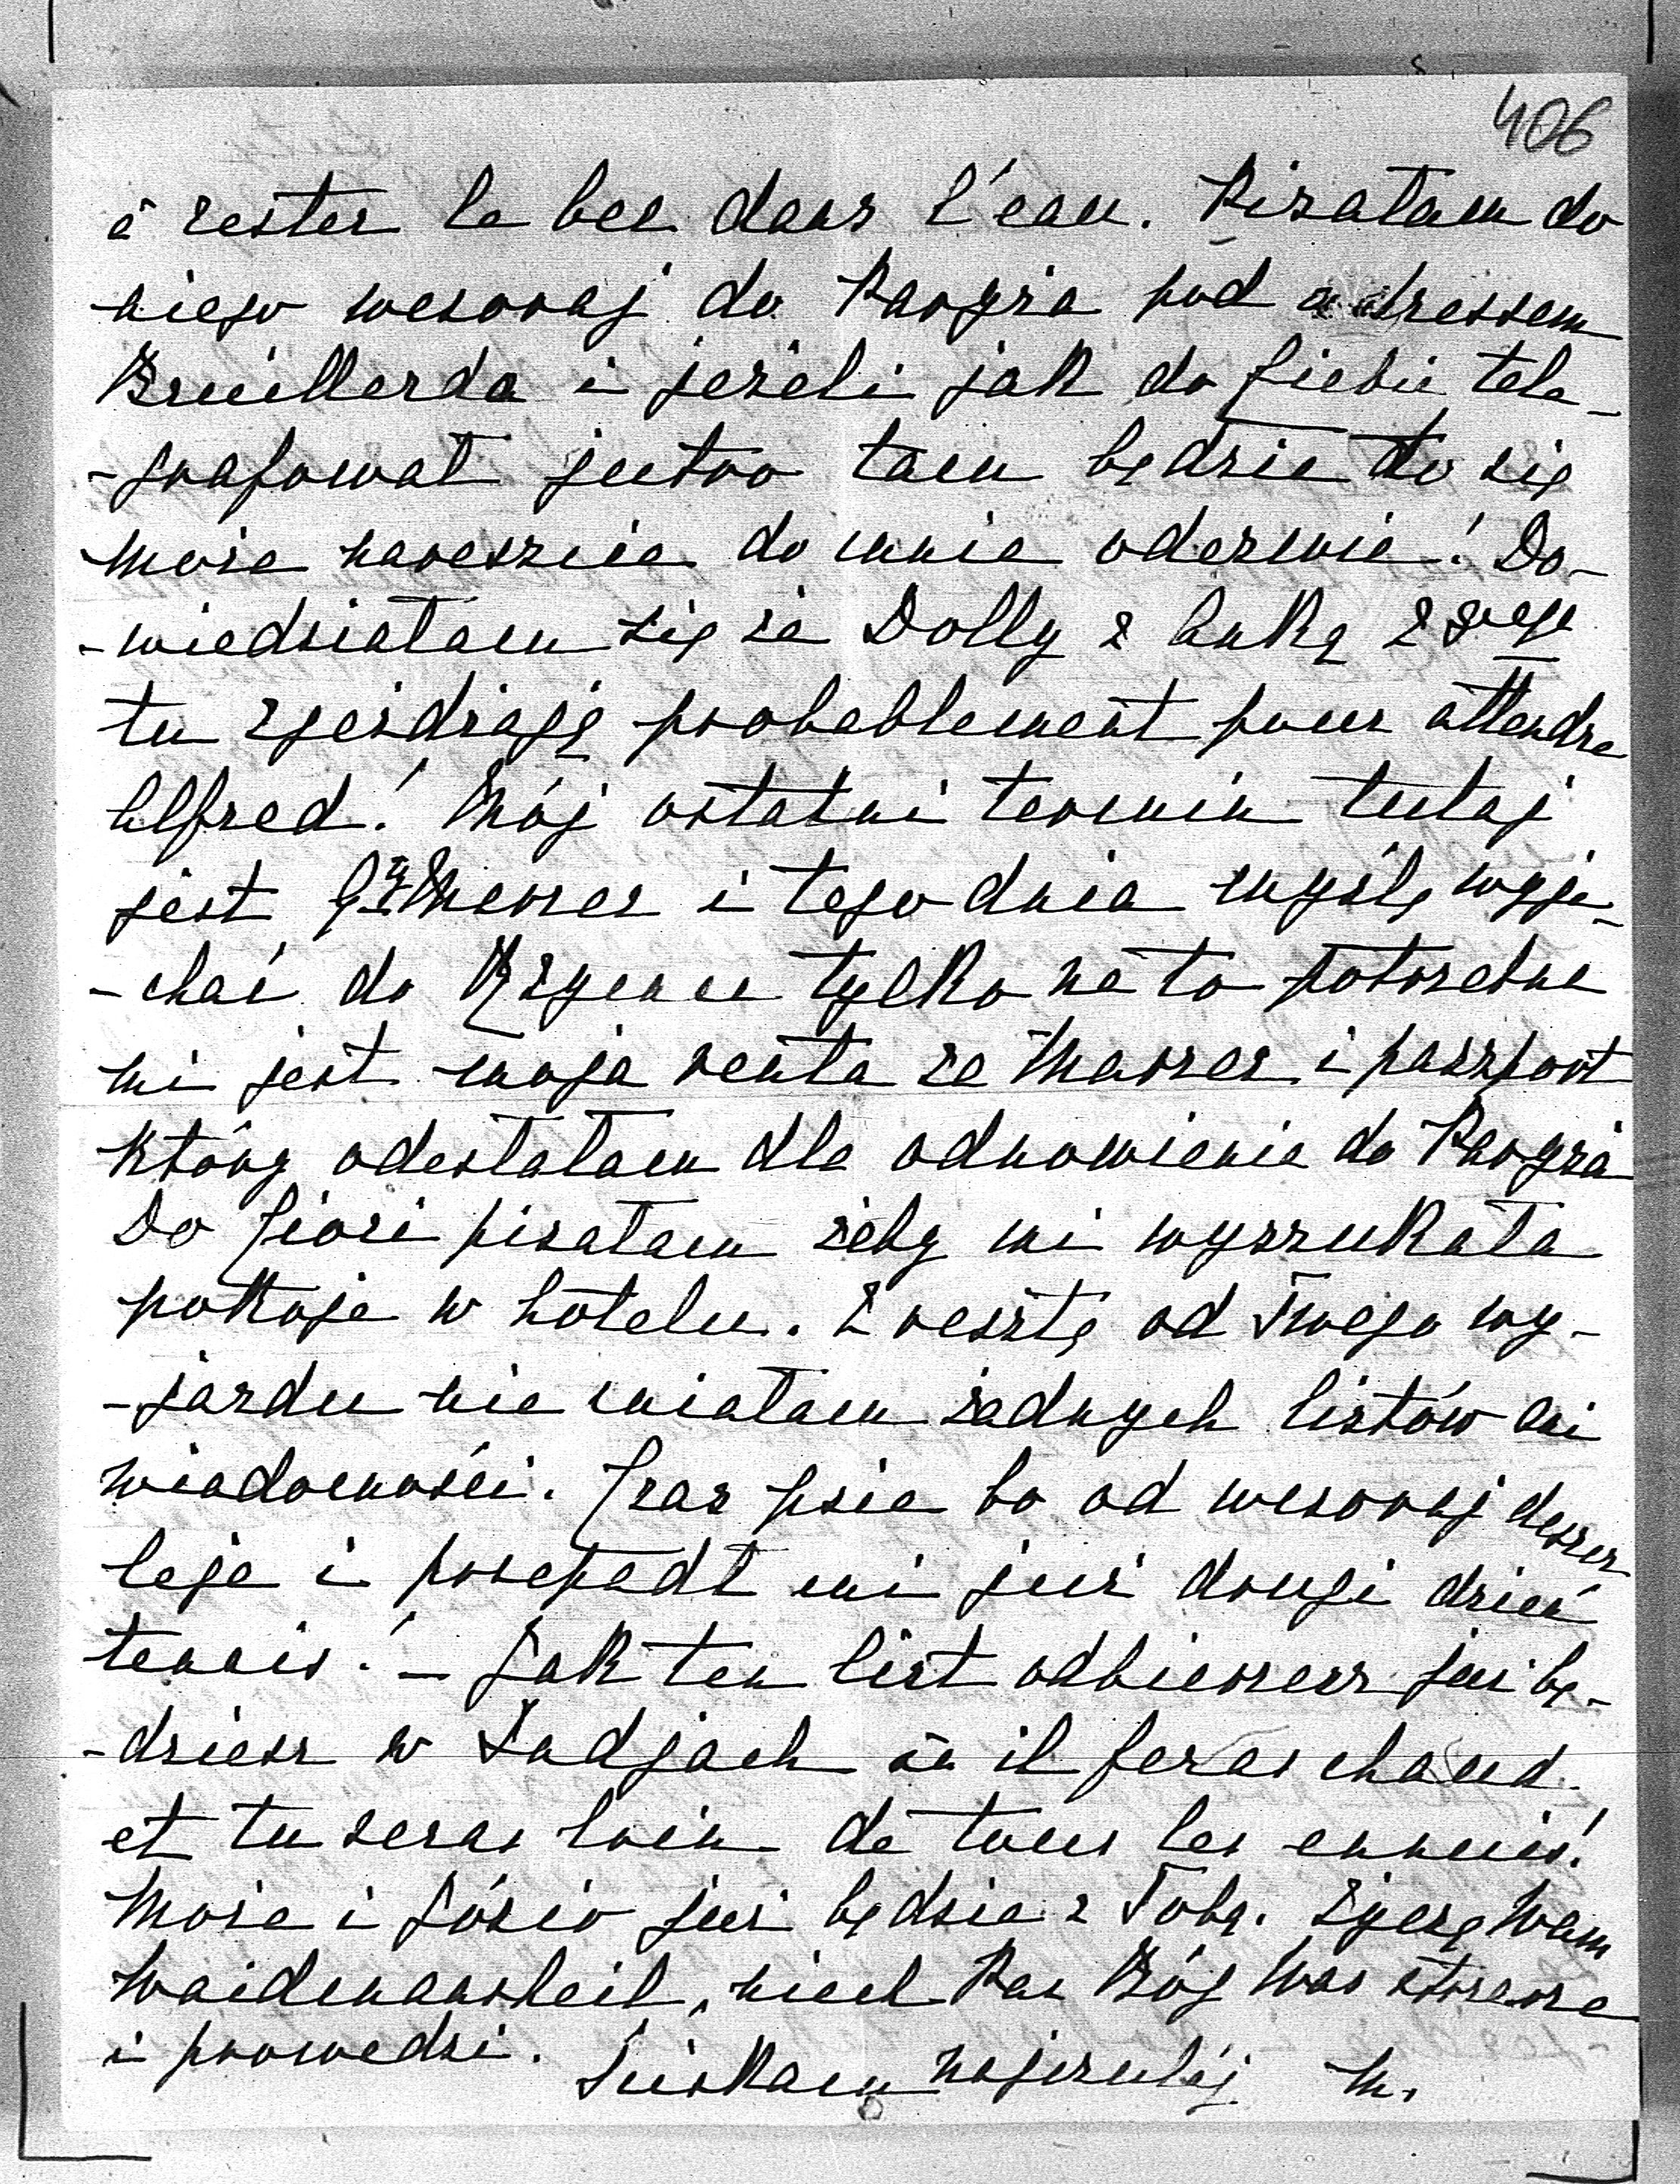 406
à rester le bec dans l'eau. Pisałam do
niego wczoraj do Paryża pod adressem
Bruillarda i jeżeli jak do Ciebie tele-
-grafował jutro tam będzie to się
może nareszcie do mnie odezwie! Do-
-wiedziałam się że Dolly z
tu zjeżdżają probablement pour attendre
Alfred! Mój ostatni termin tutaj
jest Marzec i tego dnia myślę wyje-
-chać do Rzymu tylko na to potrzebne
mi jest moja renta za Marzec i paszport
który odesłałam dla odnowienia do Paryża
Do Giori pisałam żeby mi wyszukała
pokoje w hotelu. Zresztą od Twego wy-
-jazdu nie miałam żadnych listów ani
wiadomości. Czas psie bo od wczoraj deszcz
leje i przepadł mi już drugi dzień
tennis! – Jak ten list odbierzesz już bę-
-dziesz w Indjach où il feras chaud
et tu seras loin de tous les ennuis!
Może i Józio już będzie z Tobą. Życzę Wam
Waidmannsheil, niech Pan Bóg Was strzeże
i prowadzi.
Ściskam najczulej M.